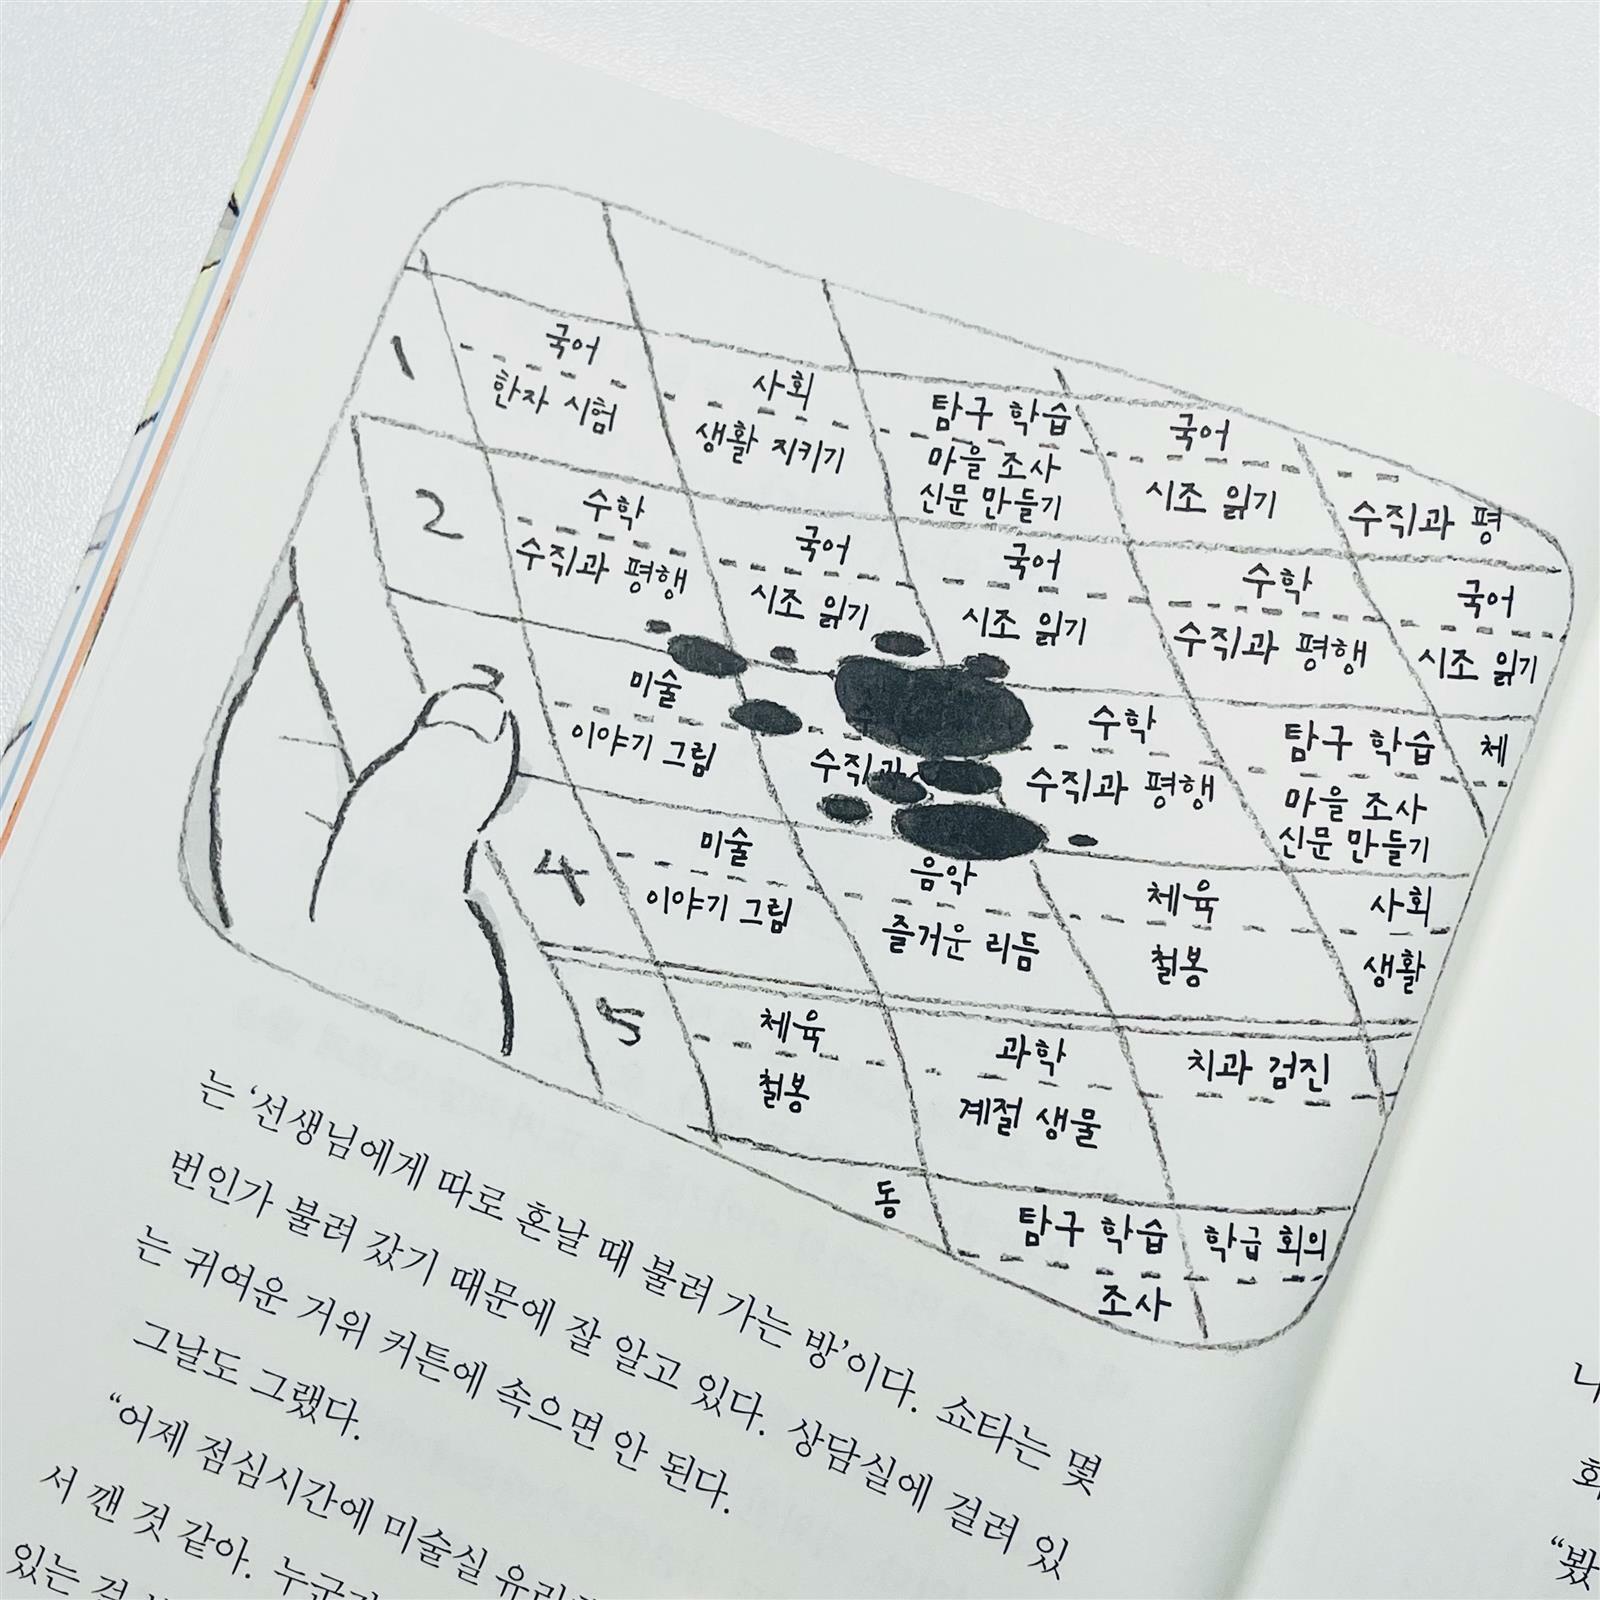 1
국어
한자 시험
사회
생활 지키기
탐구 학습
마을 조사
신문 만들기
국어
시조 읽기
수직과 평
2
수학
수직과 평행
국어
시조 읽기
국어
시조 읽기
수학
수직과 평행
국어
시조 읽기
3
미술
이야기 그림
수직과
수학
수직과 평행
탐구 학습
마을 조사
신문 만들기
체
4
미술
이야기 그림
음악
즐거운 리듬
체육
철봉
사회
생활
5
체육
철봉
과학
계절 생물
치과 검진
동
탐구 학습
조사
학급 회의
는 ‘선생님에게 따로 혼날 때 불려 가는 방’이다. 쇼타는 몇
번인가 불려 갔기 때문에 잘 알고 있다. 상담실에 걸려 있
는 귀여운 거위 커튼에 속으면 안 된다.
그날도 그랬다.
“어제 점심시간에 미술실 유리
서 깬 것 같아. 누군가
있는 걸
나
회
“봤